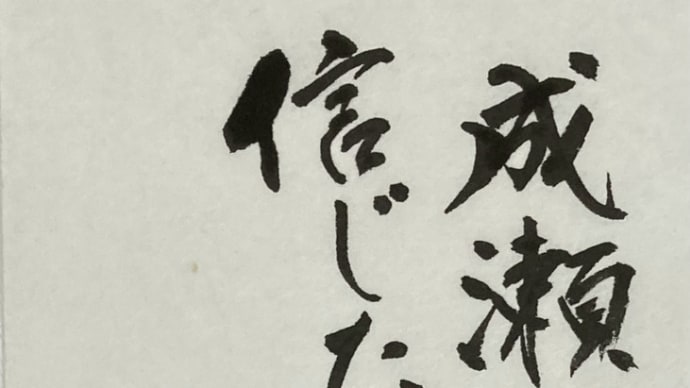 成瀬
信じた